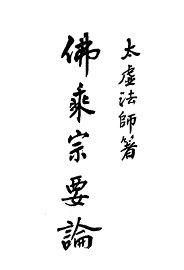 太虛法師著
佛乘宗要論